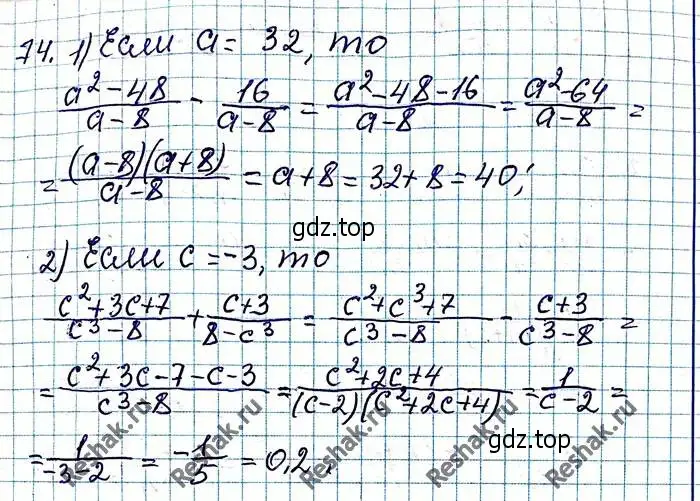 74. 1) Если a = 32, то
(a² - 48)/(a - 8) - 16/(a - 8) = (a² - 48 - 16)/(a - 8) = (a² - 64)/(a - 8) =
= (a - 8)(a + 8)/(a - 8) = a + 8 = 32 + 8 = 40;
gdz.top
2) Если c = -3, то
(c² + 3c + 7)/(c³ - 8) + (c + 3)/(8 - c³) = (c² + c³ + 7)/(c³ - 8) - (c + 3)/(c³ - 8) =
= (c² + 3c - 7 - c - 3)/(c³ - 8) = (c² + 2c + 4)/((c - 2)(c² + 2c + 4)) = 1/(c - 2) =
= 1/(-3 - 2) = -1/5 = 0,2.
gdz.top
Reshak.ru
Reshak.ru
Reshak.ru
Reshak.ru